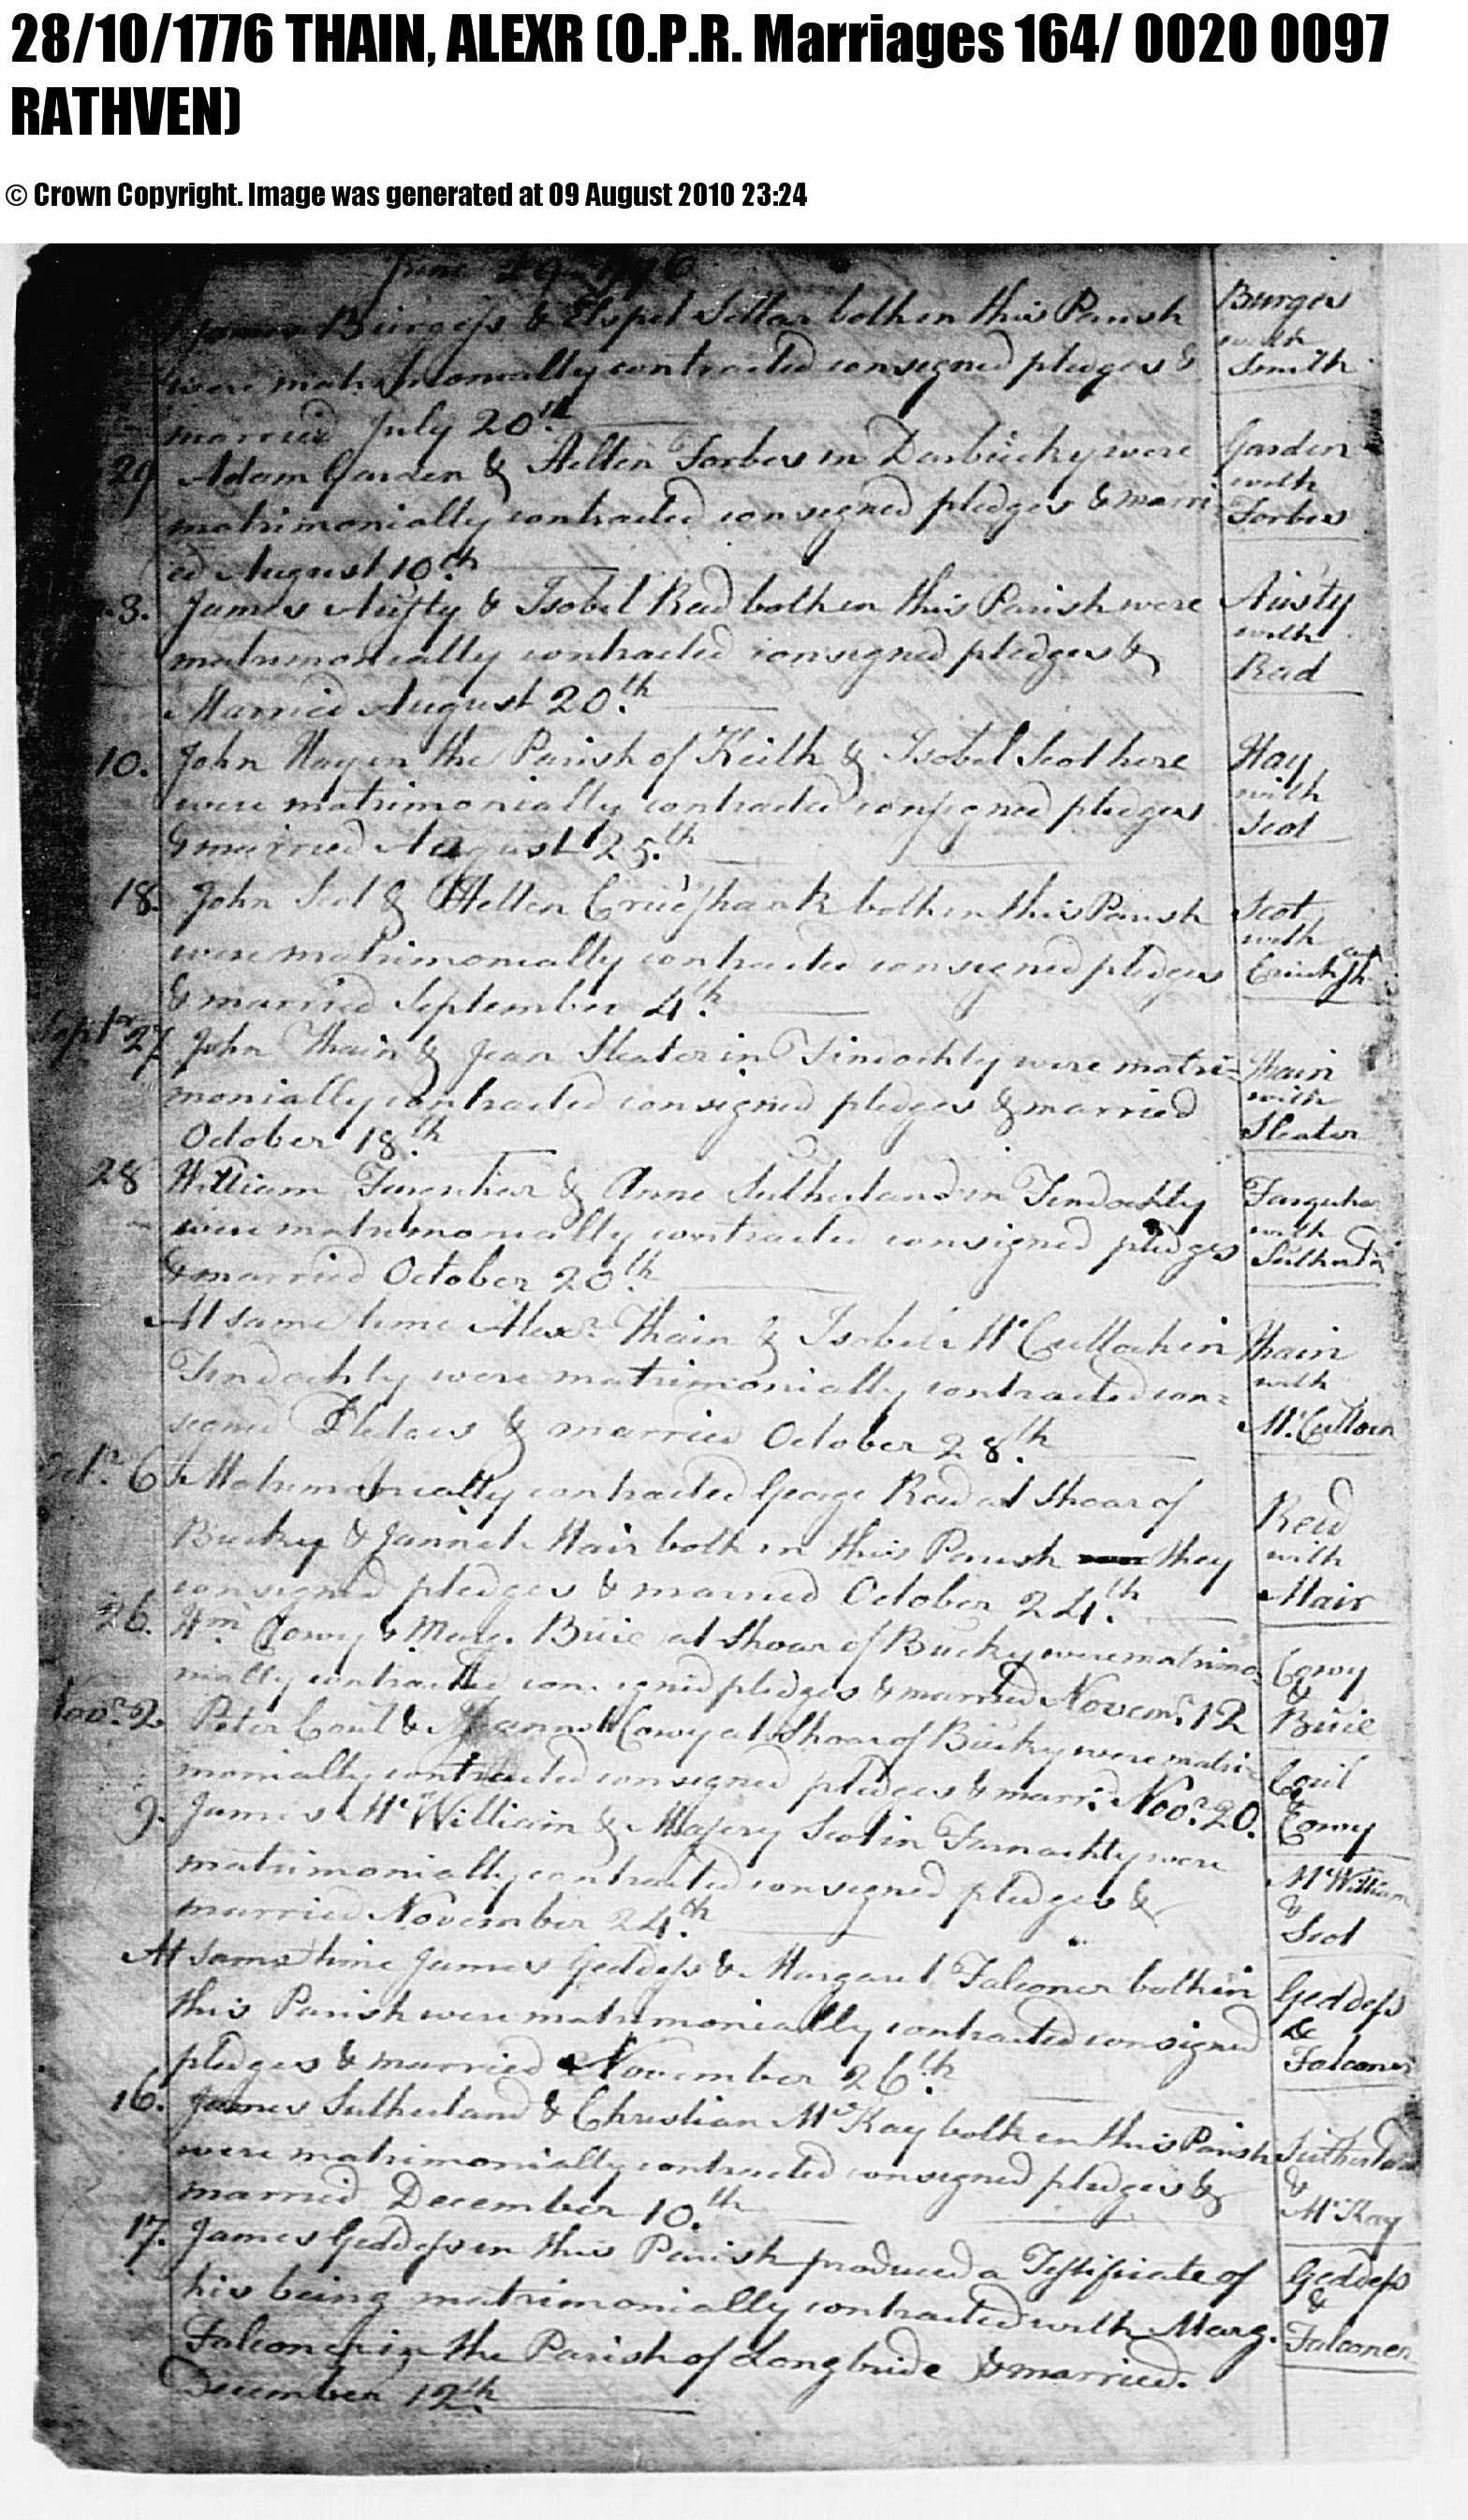 28/10/1776 THAIN, ALEXR (O.P.R. Marriages 164/ 0020 0097
RATHVEN)
© Crown Copyright. Image was generated at 09 August 2010 23:24
June 29 1776
Burgess & Elspet both in this Parish
were matrimonially contracted consigned pledges &
married July 20th.
Burges
with
Smith
29 Adam Garden & Hellen Forbes in Darbucky were
matrimonially contracted consigned pledges & marri
ed August 10th.
Garden
with
Forbes
3. James Austy & Isobel Read both in this Parish were
matrimonially contracted consigned pledges &
Married August 20.th
Austy
with
Read
10. John Hay in the Parish of Keith & Isobel Scot here
were matrimonially contracted consigned pledges
& married August 25.th
Hay
with
Scot
18. John Scot & Hellen Cruikshank both in this Parish
were matrimonially contracted consigned pledges
& married September 4.th
Scot
with
Septr 27 John Thain & Jean Slater in were matri=
monially contracted consigned pledges & married
October 18.th
Thain
with
Slater
28 William Farquhar & Anne Sutherland in Findochty
were matrimonially contracted consigned pledges
& married October 20th.
Farquhar
with
At same time Alexr. Thain & Isobel McCulloch in
Findochty were matrimonially contracted con=
signed & married October 28.th
Thain
with
McCulloch
Octr. 6 Matrimonially contracted George Reid at Shoar of
Bucky & Jannet Mair both in this Parish they
consigned pledges & married October 24.th
Reid
with
Mair
26. Wm. Cowy & Marg. Buie at Shoar of Bucky were matrimo=
nially contracted consigned pledges & married Novemr. 12
Cowy
&
Buie
Novr. 2 Peter Coul & Jannet Cowy at Shoar of Bucky were matri=
monially contracted consigned pledges & marrd. Novr. 20.
&
Cowy
9. James McWilliam & Majery Scot in were
matrimonially contracted consigned pledges &
married November 24.th
McWilliam
&
Scot
At same time James Geddess & Margaret Falconer both in
this Parish were matrimonially contracted consigned
pledges & married November 26.th
Geddess
&
Falconer
16. James Sutherland & Christian McKay both in this Parish
were matrimonially contracted consigned pledges &
married December 10.th
Sutherland
&
McKay
17. James Geddess in this Parish produced a Testificate of
his being matrimonially contracted with Marg.
Falconer in the Parish of Longbride & married.
December 12th.
Geddess
&
Falconer